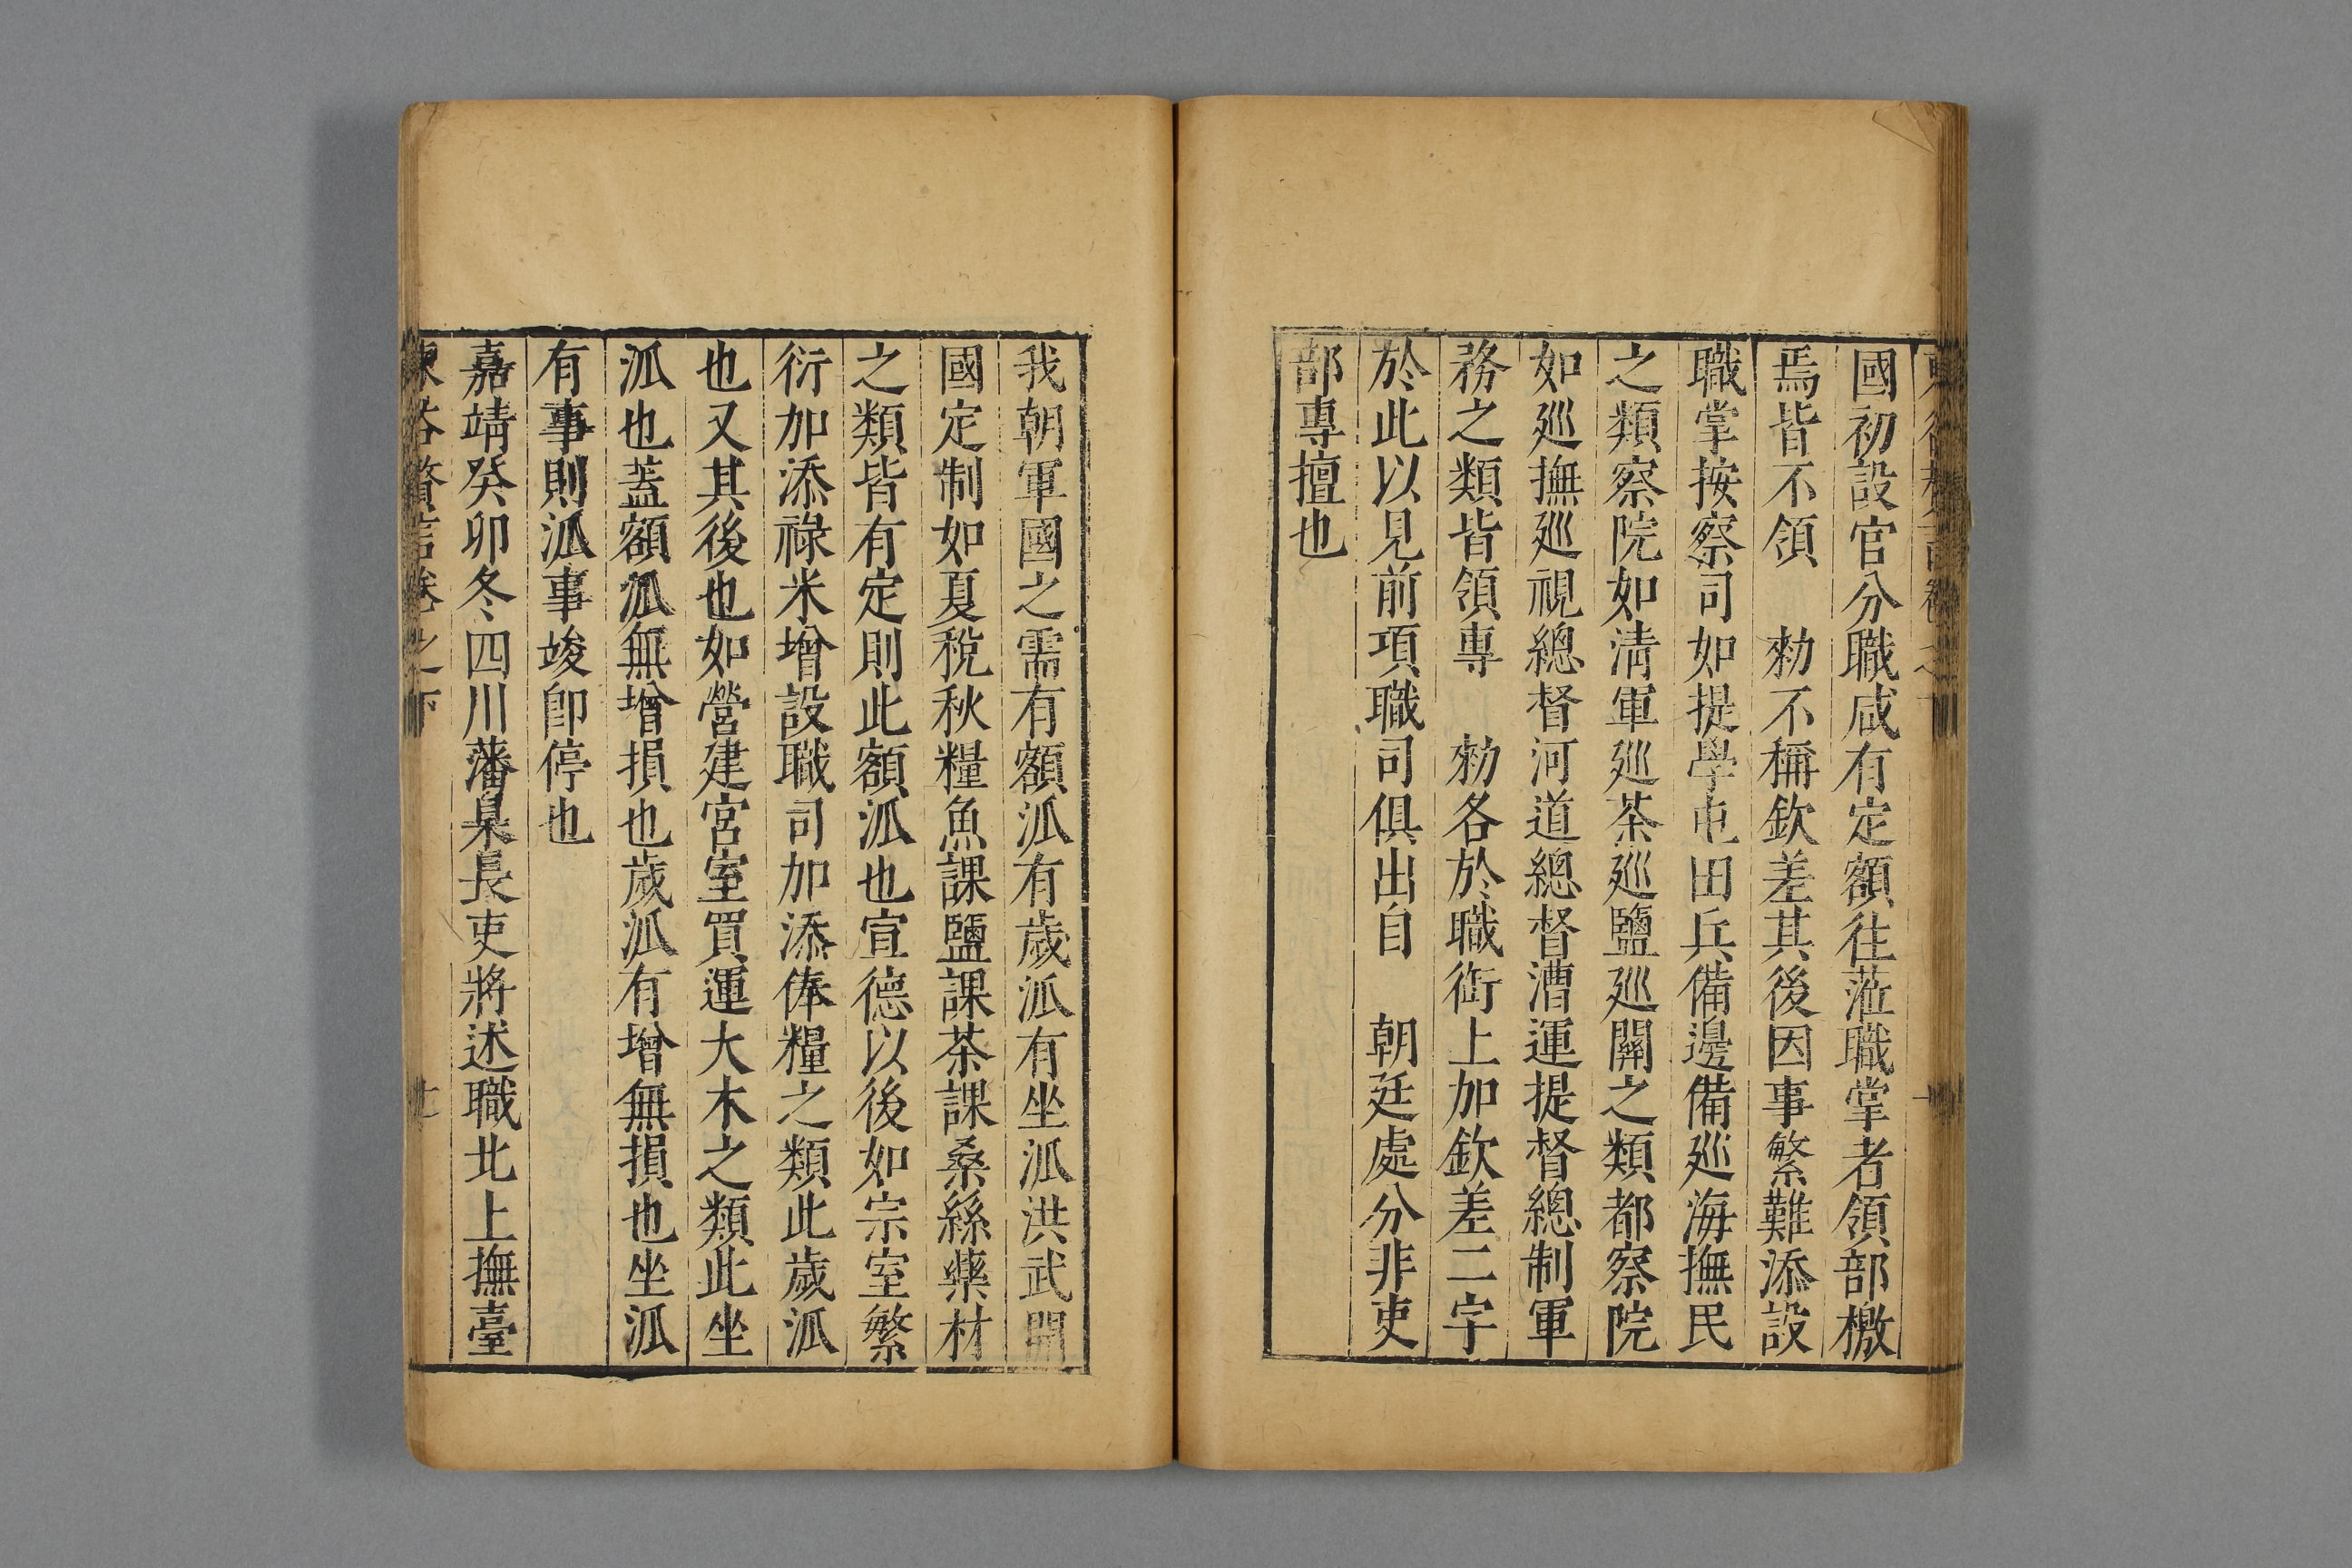 國初設官分職咸有定額往蒞職掌者領部檄
焉皆不領 勑不稱欽差其後因事繁難添設
職掌按察司如提學屯田兵備邊備廵海撫民
之類察院如淸軍廵茶廵鹽廵關之類都察院
如廵撫廵視總督河道總督漕運提督總制軍
務之類皆領專 勑各於職銜上加欽差二字
於此以見前項職司俱出自 朝廷處分非吏
部專擅也
我朝軍國之需有額泒有歲泒有坐泒洪武開
國定制如夏稅秋糧魚課鹽課茶課桑絲藥材
之類皆有定則此額泒也宣德以後如宗室繁
衍加添祿米增設職司加添俸糧之類此歲泒
也又其後也如營建宮室買運大木之類此坐
泒也蓋額泒無增損也歲泒有增無損也坐泒
有事則泒事竣卽停也
嘉靖癸卯冬四川藩臬長吏將述職北上撫臺
卷之下